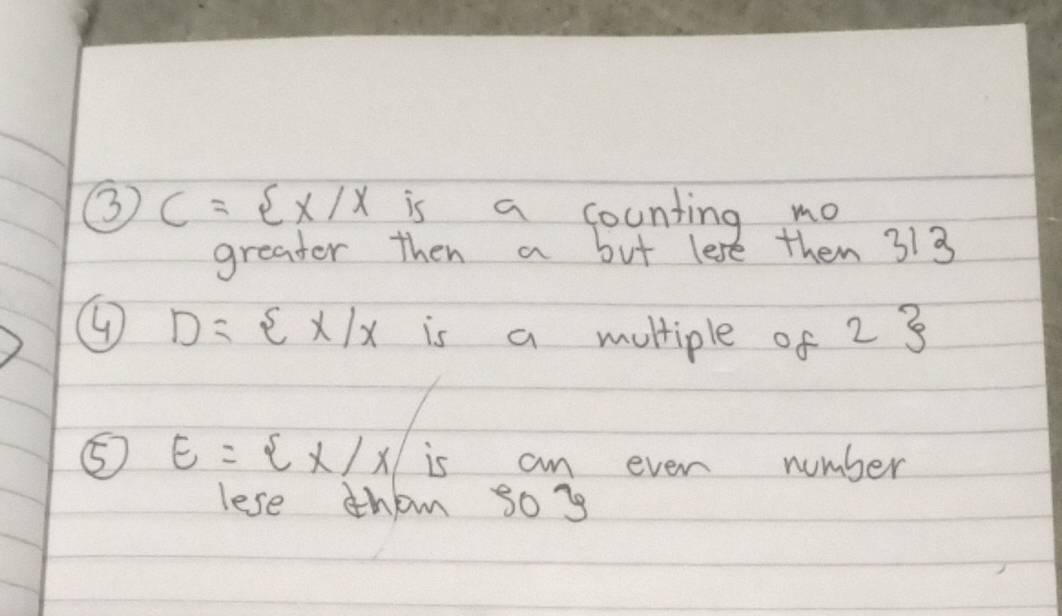 ③ C = {x/x is a counting mo
greater then a but lese then 31}
④ D = {x/x is a multiple of 2}
⑤ E = {x/x is an even number
lese than 50}